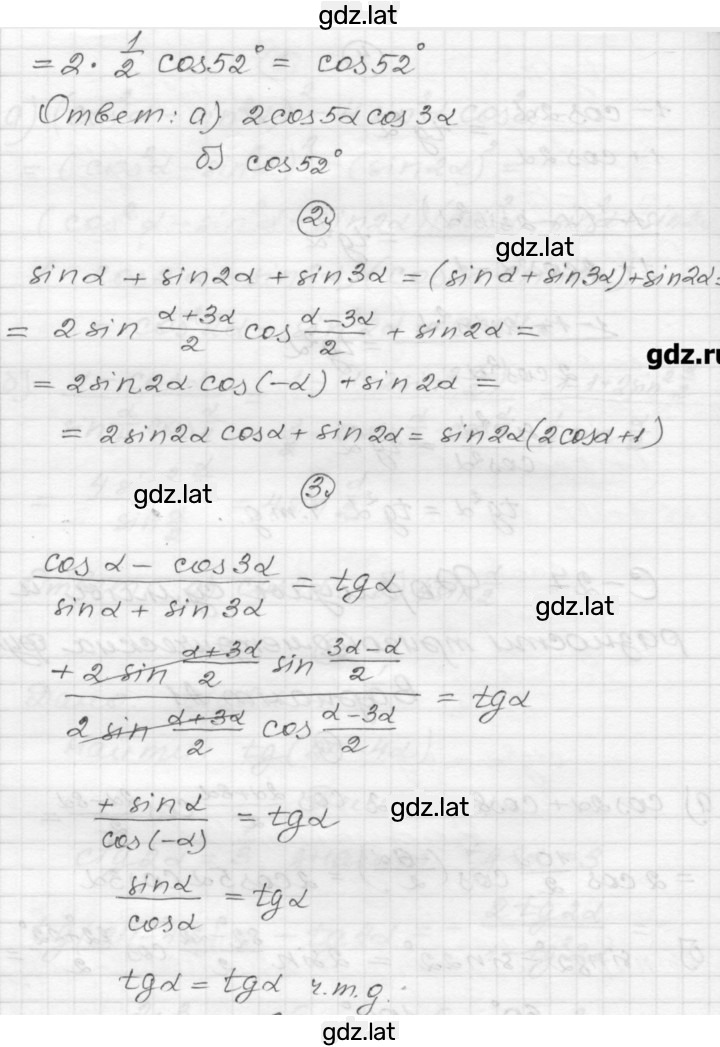 gdz.lat
= 2 · 1/2 cos52° = cos52°
Ответ: а) 2cos5α cos3α
б) cos52°
2.
gdz.lat
sinα + sin2α + sin3α = (sinα + sin3α) + sin2α =
= 2 sin (α+3α)/2 cos (α-3α)/2 + sin2α =
gdz.ru
= 2sin2α cos(-α) + sin2α =
= 2sin2α cosα + sin2α = sin2α(2cosα+1)
gdz.lat
3.
(cosα - cos3α)/(sinα + sin3α) = tgα
gdz.lat
(+2 sin (α+3α)/2 sin (3α-α)/2)/(2 sin (α+3α)/2 cos (α-3α)/2) = tgα
(+ sinα)/(cos(-α)) = tgα
gdz.lat
sinα/cosα = tgα
tgα = tgα ч.т.д.
gdz.lat